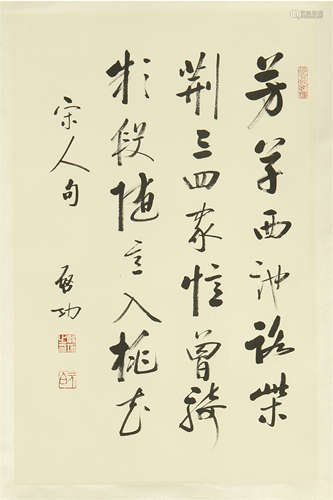 芳草西池路柴
荆三四家憶曾騎
款段随意入桃花
宋人句
啓功